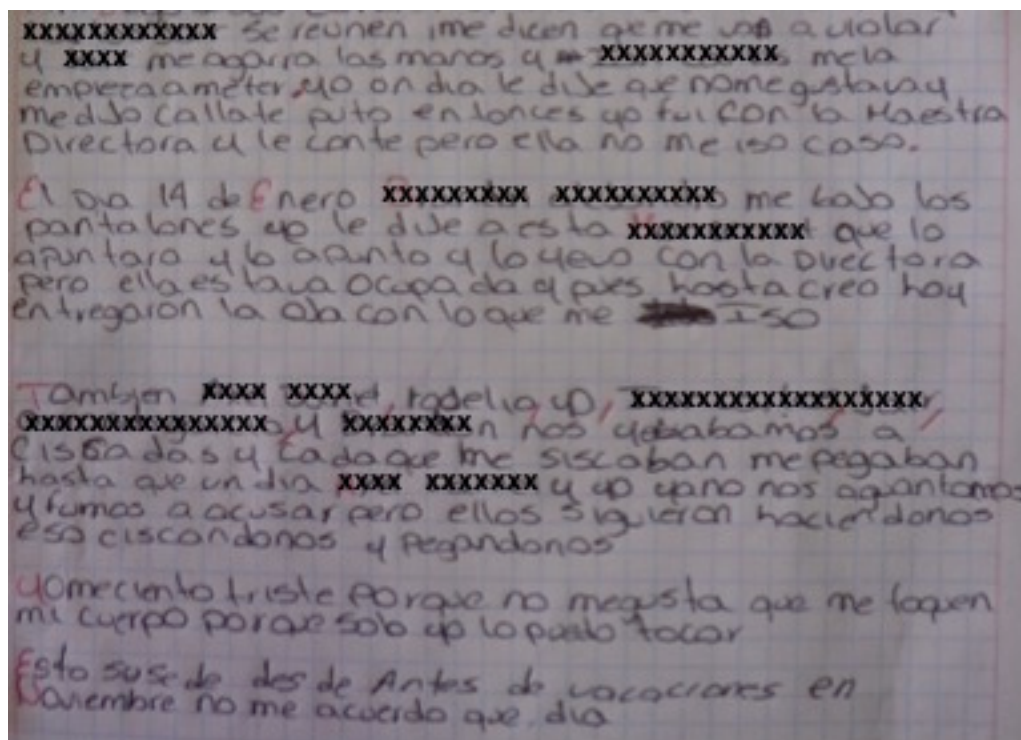 xxxxxxxxxxxx se reunen ime dicen qe me van a violar
y xxxx me agarra las manos y xxxxxxxxxxx mela
empieza a meter, yo on dia le dije que nomegustava y
medijo callate puto entonces yo fui con la Maestra
Directora y le conte pero ella no me iso caso.
El Dia 14 de Enero xxxxxxxxx xxxxxxxxxx me bajo los
pantalones yo le dije a esta xxxxxxxxxxx que lo
apuntara y lo apunto y lo yevo con la Directora
pero ella estava ocupada y pues hasta creo hoy
entregaron la oja con lo que me ISO
Tambien xxxx xxxx yo, xxxxxxxxxxxxxxxxxx,
xxxxxxxxxxxxxxx y xxxxxxxx nos a
ciscadas y cada que me siscaban me pegaban
hasta que un dia xxxx xxxxxxx y yo yano nos aguantamos
y fumos a acusar pero ellos siguieron haciendonos
eso ciscandonos y pegandonos
yo meciento triste porque no megusta que me toquen
mi cuerpo porque solo yo lo puedo tocar
Esto susede desde Antes de vacaciones en
Noviembre no me acuerdo que dia